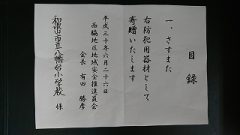 目録
一、さすまた
右防犯用器材として
寄贈いたします
平成三十年六月二十六日
西脇地区地域安全推進員会
会長 有田 勝彦
和歌山市立八幡台小学校 様